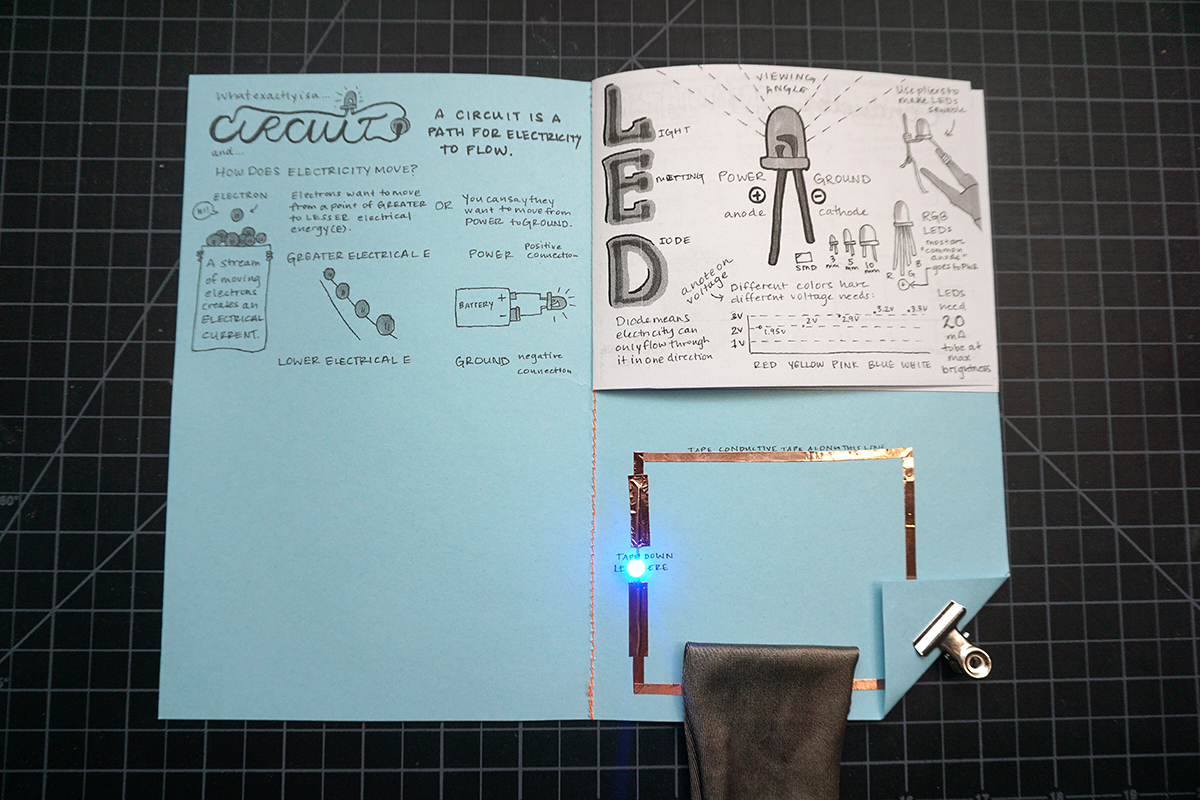 What exactly is a...
CIRCUIT
and...
A CIRCUIT IS A
PATH FOR ELECTRICITY
TO FLOW.
HOW DOES ELECTRICITY MOVE?
ELECTRON
HI!
A STREAM
of moving
electrons
creates an
ELECTRICAL
CURRENT.
Electrons want to move
from a point of GREATER
to LESSER electrical
energy(E).
OR
You can say they
want to move from
POWER to GROUND.
GREATER ELECTRICAL E
LOWER ELECTRICAL E
POWER Positive
connection
BATTERY + -
GROUND negative
connection
LIGHT
EMITTING
DIODE
VIEWING
ANGLE
POWER
+
anode
GROUND
-
cathode
Use pliers to
make LEDs
sewable
SMD
3
mm
5
mm
10
mm
RGB
LEDs
most are
"common
anode"
goes to PWR
R G B
+
a note on
voltage
Different colors have
different voltage needs:
3V
2V
1V
1.95V
2V
2.9V
3.2V
3.3V
RED YELLOW PINK BLUE WHITE
Diode means
electricity can
only flow through
it in one direction
LEDs
need
20
mA
to be at
max
brightness
TAPE CONDUCTIVE TAPE ALONG THIS LINE
TAPE DOWN
16 17 18